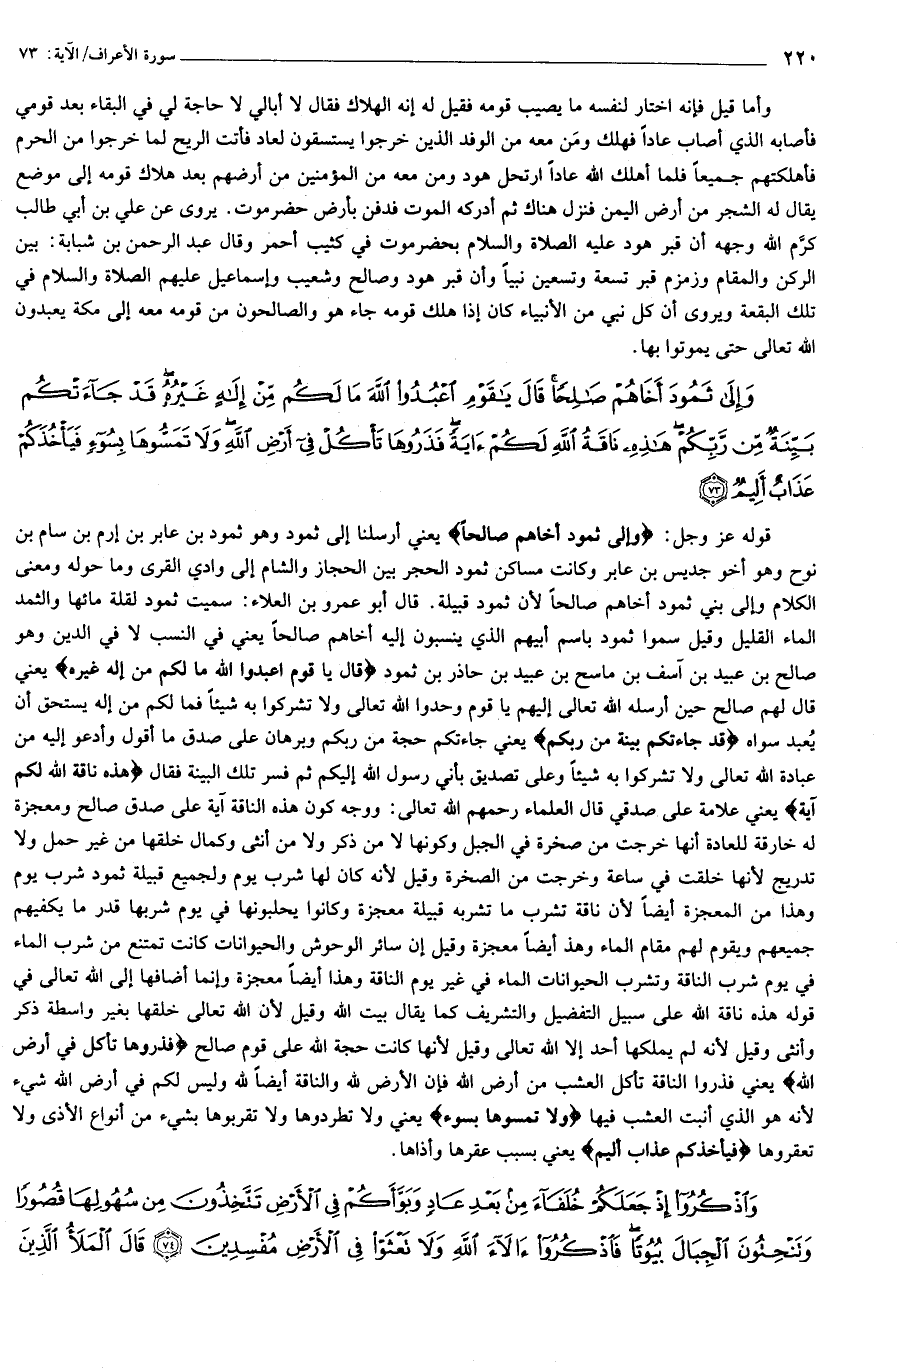 ٢٢٠ سورة الأعراف/ الآية: ٧٣
وأما قيل فإنه اختار لنفسه ما يصيب قومه فقيل له إنه الهلاك فقال لا أبالي لا حاجة لي في البقاء بعد قومي
فأصابه الذي أصاب عاداً فهلك ومَن معه من الوفد الذين خرجوا يستسقون لعاد فأتت الريح لما خرجوا من الحرم
فأهلكتهم جميعاً فلما أهلك الله عاداً ارتحل هود ومن معه من المؤمنين من أرضهم بعد هلاك قومه إلى موضع
يقال له الشجر من أرض اليمن فنزل هناك ثم أدركه الموت فدفن بأرض حضرموت. يروى عن علي بن أبي طالب
كرَّم الله وجهه أن قبر هود عليه الصلاة والسلام بحضرموت في كثيب أحمر وقال عبد الرحمن بن شبابة: بين
الركن والمقام وزمزم قبر تسعة وتسعين نبياً وأن قبر هود وصالح وشعيب وإسماعيل عليهم الصلاة والسلام في
تلك البقعة ويروى أن كل نبي من الأنبياء كان إذا هلك قومه جاء هو والصالحون من قومه معه إلى مكة يعبدون
الله تعالى حتى يموتوا بها.
وَإِلَىٰ ثَمُودَ أَخَاهُمْ صَـٰلِحًاۚ قَالَ يَـٰقَوْمِ ٱعْبُدُوا۟ ٱللَّهَ مَا لَكُم مِّنْ إِلَـٰهٍ غَيْرُهُۥۖ قَدْ جَآءَتْكُم
بَيِّنَةٌ مِّن رَّبِّكُمْۖ هَـٰذِهِۦ نَاقَةُ ٱللَّهِ لَكُمْ ءَايَةًۖ فَذَرُوهَا تَأْكُلْ فِىٓ أَرْضِ ٱللَّهِۖ وَلَا تَمَسُّوهَا بِسُوٓءٍ فَيَأْخُذَكُمْ
عَذَابٌ أَلِيمٌ ﴿٧٣﴾
قوله عز وجل: ﴿وإلى ثمود أخاهم صالحاً﴾ يعني أرسلنا إلى ثمود وهو ثمود بن عابر بن إرم بن سام بن
نوح وهو أخو جديس بن عابر وكانت مساكن ثمود الحجر بين الحجاز والشام إلى وادي القرى وما حوله ومعنى
الكلام وإلى بني ثمود أخاهم صالحاً لأن ثمود قبيلة. قال أبو عمرو بن العلاء: سميت ثمود لقلة مائها والثمد
الماء القليل وقيل سموا ثمود باسم أبيهم الذي ينسبون إليه أخاهم صالحاً يعني في النسب لا في الدين وهو
صالح بن عبيد بن آسف بن ماسح بن عبيد بن حاذر بن ثمود ﴿قال يا قوم اعبدوا الله ما لكم من إله غيره﴾ يعني
قال لهم صالح حين أرسله الله تعالى إليهم يا قوم وحدوا الله تعالى ولا تشركوا به شيئاً فما لكم من إله يستحق أن
يُعبد سواه ﴿قد جاءتكم بينة من ربكم﴾ يعني جاءتكم حجة من ربكم وبرهان على صدق ما أقول وأدعو إليه من
عبادة الله تعالى ولا تشركوا به شيئاً وعلى تصديق بأني رسول الله إليكم ثم فسر تلك البينة فقال ﴿هذه ناقة الله لكم
آية﴾ يعني علامة على صدقي قال العلماء رحمهم الله تعالى: ووجه كون هذه الناقة آية على صدق صالح ومعجزة
له خارقة للعادة أنها خرجت من صخرة في الجبل وكونها لا من ذكر ولا من أنثى وكمال خلقها من غير حمل ولا
تدريج لأنها خلقت في ساعة وخرجت من الصخرة وقيل لأنه كان لها شرب يوم ولجميع قبيلة ثمود شرب يوم
وهذا من المعجزة أيضاً لأن ناقة تشرب ما تشربه قبيلة معجزة وكانوا يحلبونها في يوم شربها قدر ما يكفيهم
جميعهم ويقوم لهم مقام الماء وهذ أيضاً معجزة وقيل إن سائر الوحوش والحيوانات كانت تمتنع من شرب الماء
في يوم شرب الناقة وتشرب الحيوانات الماء في غير يوم الناقة وهذا أيضاً معجزة وإنما أضافها إلى الله تعالى في
قوله هذه ناقة الله على سبيل التفضيل والتشريف كما يقال بيت الله وقيل لأن الله تعالى خلقها بغير واسطة ذكر
وأنثى وقيل لأنه لم يملكها أحد إلا الله تعالى وقيل لأنها كانت حجة الله على قوم صالح ﴿فذروها تأكل في أرض
الله﴾ يعني فذروا الناقة تأكل العشب من أرض الله فإن الأرض لله والناقة أيضاً لله وليس لكم في أرض الله شيء
لأنه هو الذي أنبت العشب فيها ﴿ولا تمسوها بسوء﴾ يعني ولا تطردوها ولا تقربوها بشيء من أنواع الأذى ولا
تعقروها ﴿فيأخذكم عذاب أليم﴾ يعني بسبب عقرها وأذاها.
وَٱذْكُرُوٓا۟ إِذْ جَعَلَكُمْ خُلَفَآءَ مِنۢ بَعْدِ عَادٍ وَبَوَّأَكُمْ فِى ٱلْأَرْضِ تَتَّخِذُونَ مِن سُهُولِهَا قُصُورًا
وَتَنْحِتُونَ ٱلْجِبَالَ بُيُوتًاۖ فَٱذْكُرُوٓا۟ ءَالَآءَ ٱللَّهِ وَلَا تَعْثَوْا۟ فِى ٱلْأَرْضِ مُفْسِدِينَ ﴿٧٤﴾ قَالَ ٱلْمَلَأُ ٱلَّذِينَ